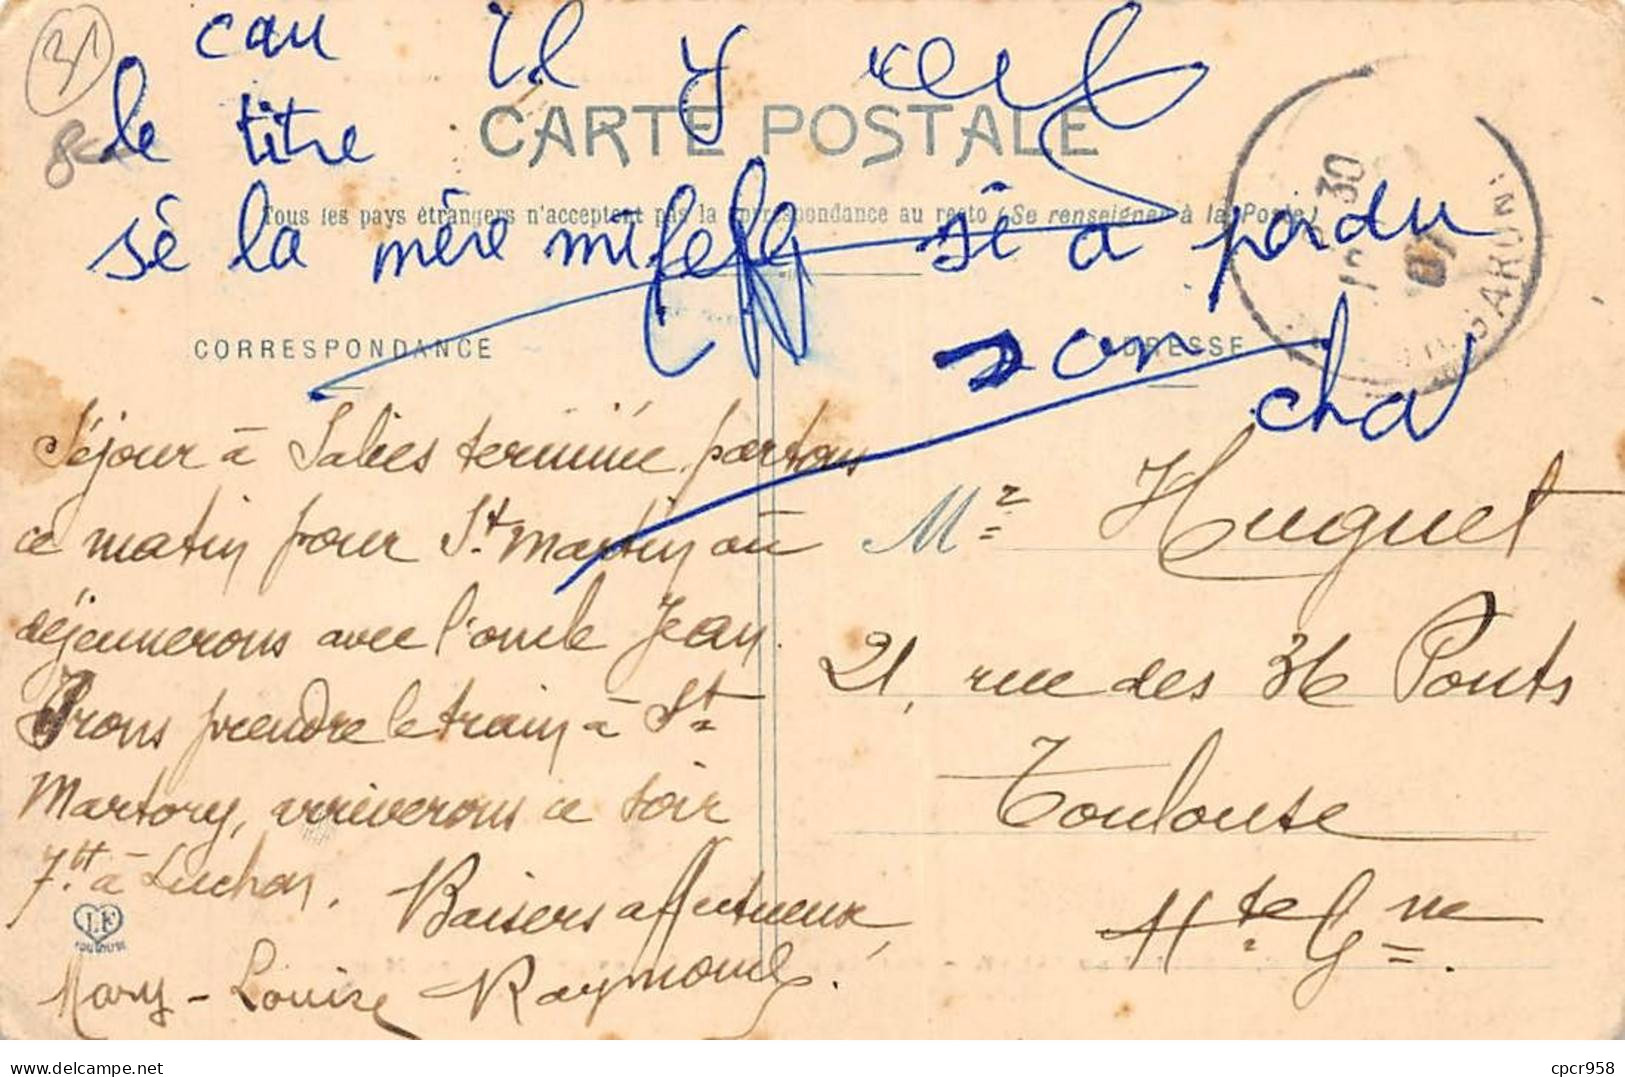 31
can il y
le titre
CARTE POSTALE
Tous les pays étrangers n'acceptent pas la correspondance au recto (Se renseigner à la Poste)
sè la mère si a perdu
son
cha
30
GARONN
CORRESPONDANCE
ADRESSE
Séjour à Salies terminé partons
ce matin pour St. Martin où
déjeunerons avec l'oncle Jean.
Irons prendre le train à St
Martory, arriverons ce soir
7.ht à Luchon. Baisers affectueux,
Mary-Louise Raymond.
LF
TOULOUSE
Mr Huguet
21, rue des 36 Ponts
Toulouse
Hte Gne.
www.delcampe.net
cpcr958